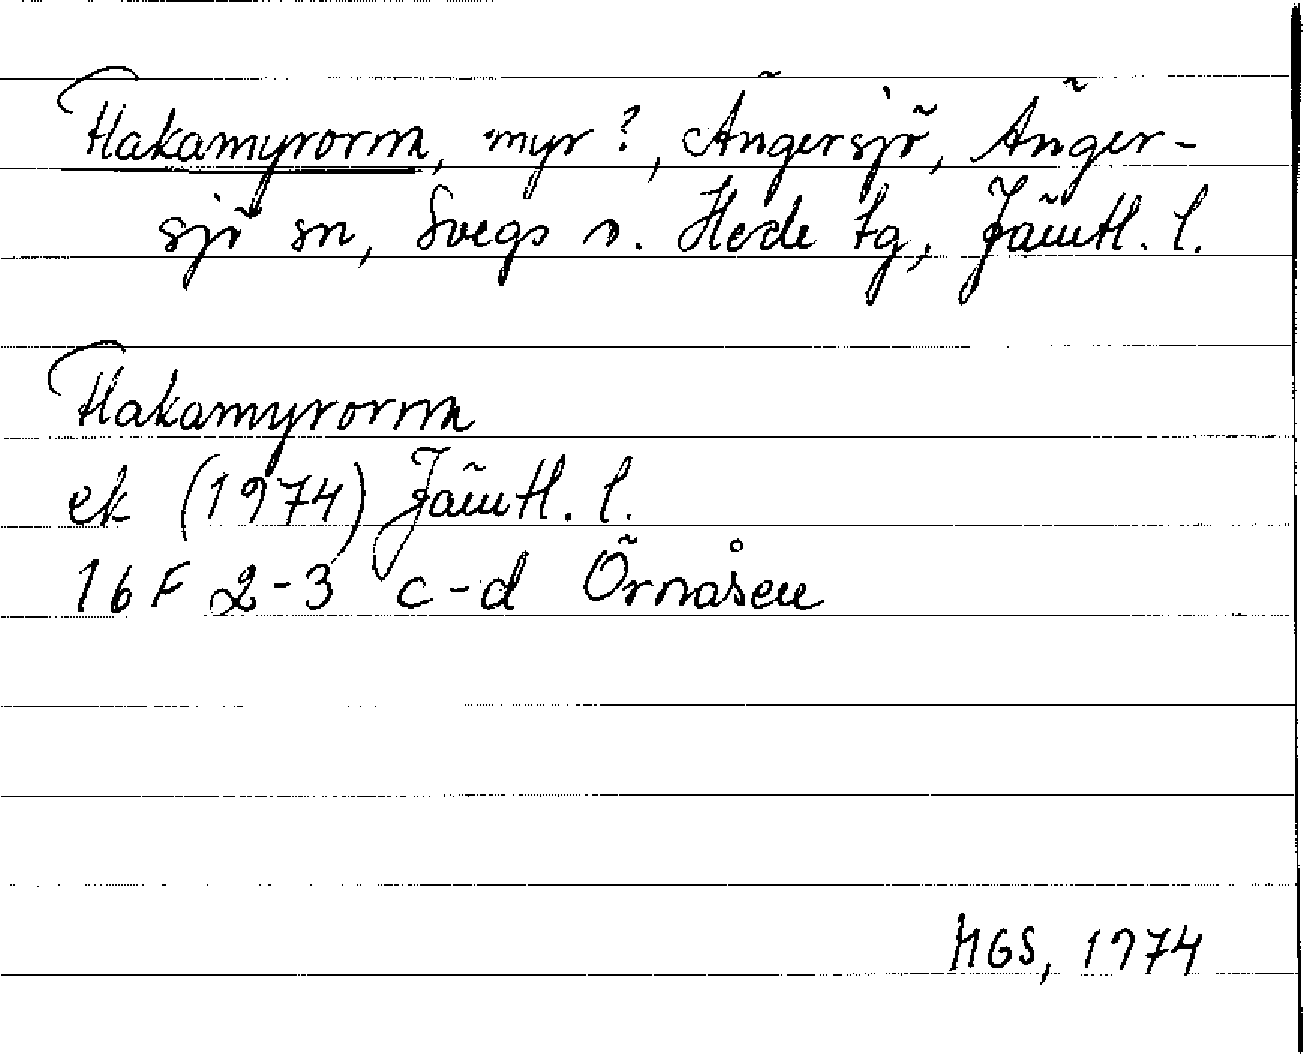 Hakamyrorna, myr?, Ängersjö, Änger-
sjö sn, Svegs o. Hede tg, Jämtl. l.
Hakamyrorna
ek (1974) Jämtl. l.
16 F 2-3 c-d Örnåsen
MGS, 1974